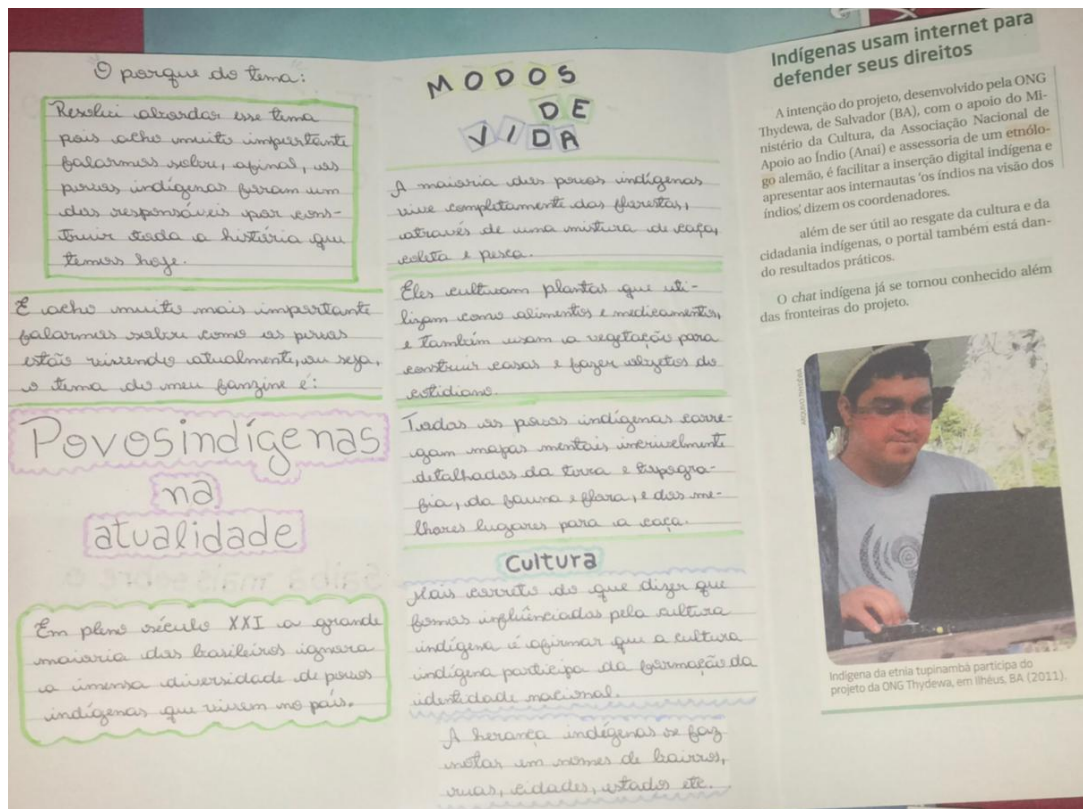 O porque do tema:
Resolvi abordar esse tema
pois acho muito importante
falarmos sobre, afinal, os
povos indígenas foram um
dos responsáveis por cons-
truir toda a história que
temos hoje.
E acho muito mais importante
falarmos sobre como os povos
estão vivendo atualmente, ou seja,
o tema do meu fanzine é:
Povos indígenas
na
atualidade
Em pleno século XXI a grande
maioria dos brasileiros ignora
a imensa diversidade de povos
indígenas que vivem no país.
MODOS
DE
VIDA
A maioria dos povos indígenas
vive completamente das florestas,
através de uma mistura de caça,
colita e pesca.
Eles cultivam plantas que uti-
lizam como alimentos e medicamentos,
e também usam a vegetação para
construir casas e fazer objetos do
cotidiano.
Todos os povos indígenas carre-
gam mapas mentais incrivelmente
detalhados da terra e topogra-
fia, da fauna e flora, e dos me-
lhores lugares para a caça.
Cultura
Mais correto do que dizer que
fomos influênciados pela cultura
indígena é afirmar que a cultura
indígena participa da formação da
identidade nacional.
A herança indígenas se faz
notar em nomes de bairros,
ruas, cidades, estados etc.
Indígenas usam internet para
defender seus direitos
A intenção do projeto, desenvolvido pela ONG
Thydewa, de Salvador (BA), com o apoio do Mi-
nistério da Cultura, da Associação Nacional de
Apoio ao Índio (Anaí) e assessoria de um etnólo-
go alemão, é facilitar a inserção digital indígena e
apresentar aos internautas 'os índios na visão dos
índios', dizem os coordenadores.
além de ser útil ao resgate da cultura e da
cidadania indígenas, o portal também está dan-
do resultados práticos.
O chat indígena já se tornou conhecido além
das fronteiras do projeto.
ARQUIVO THYDEWA
Indígena da etnia tupinambá participa do
projeto da ONG Thydewa, em Ilhéus, BA (2011).